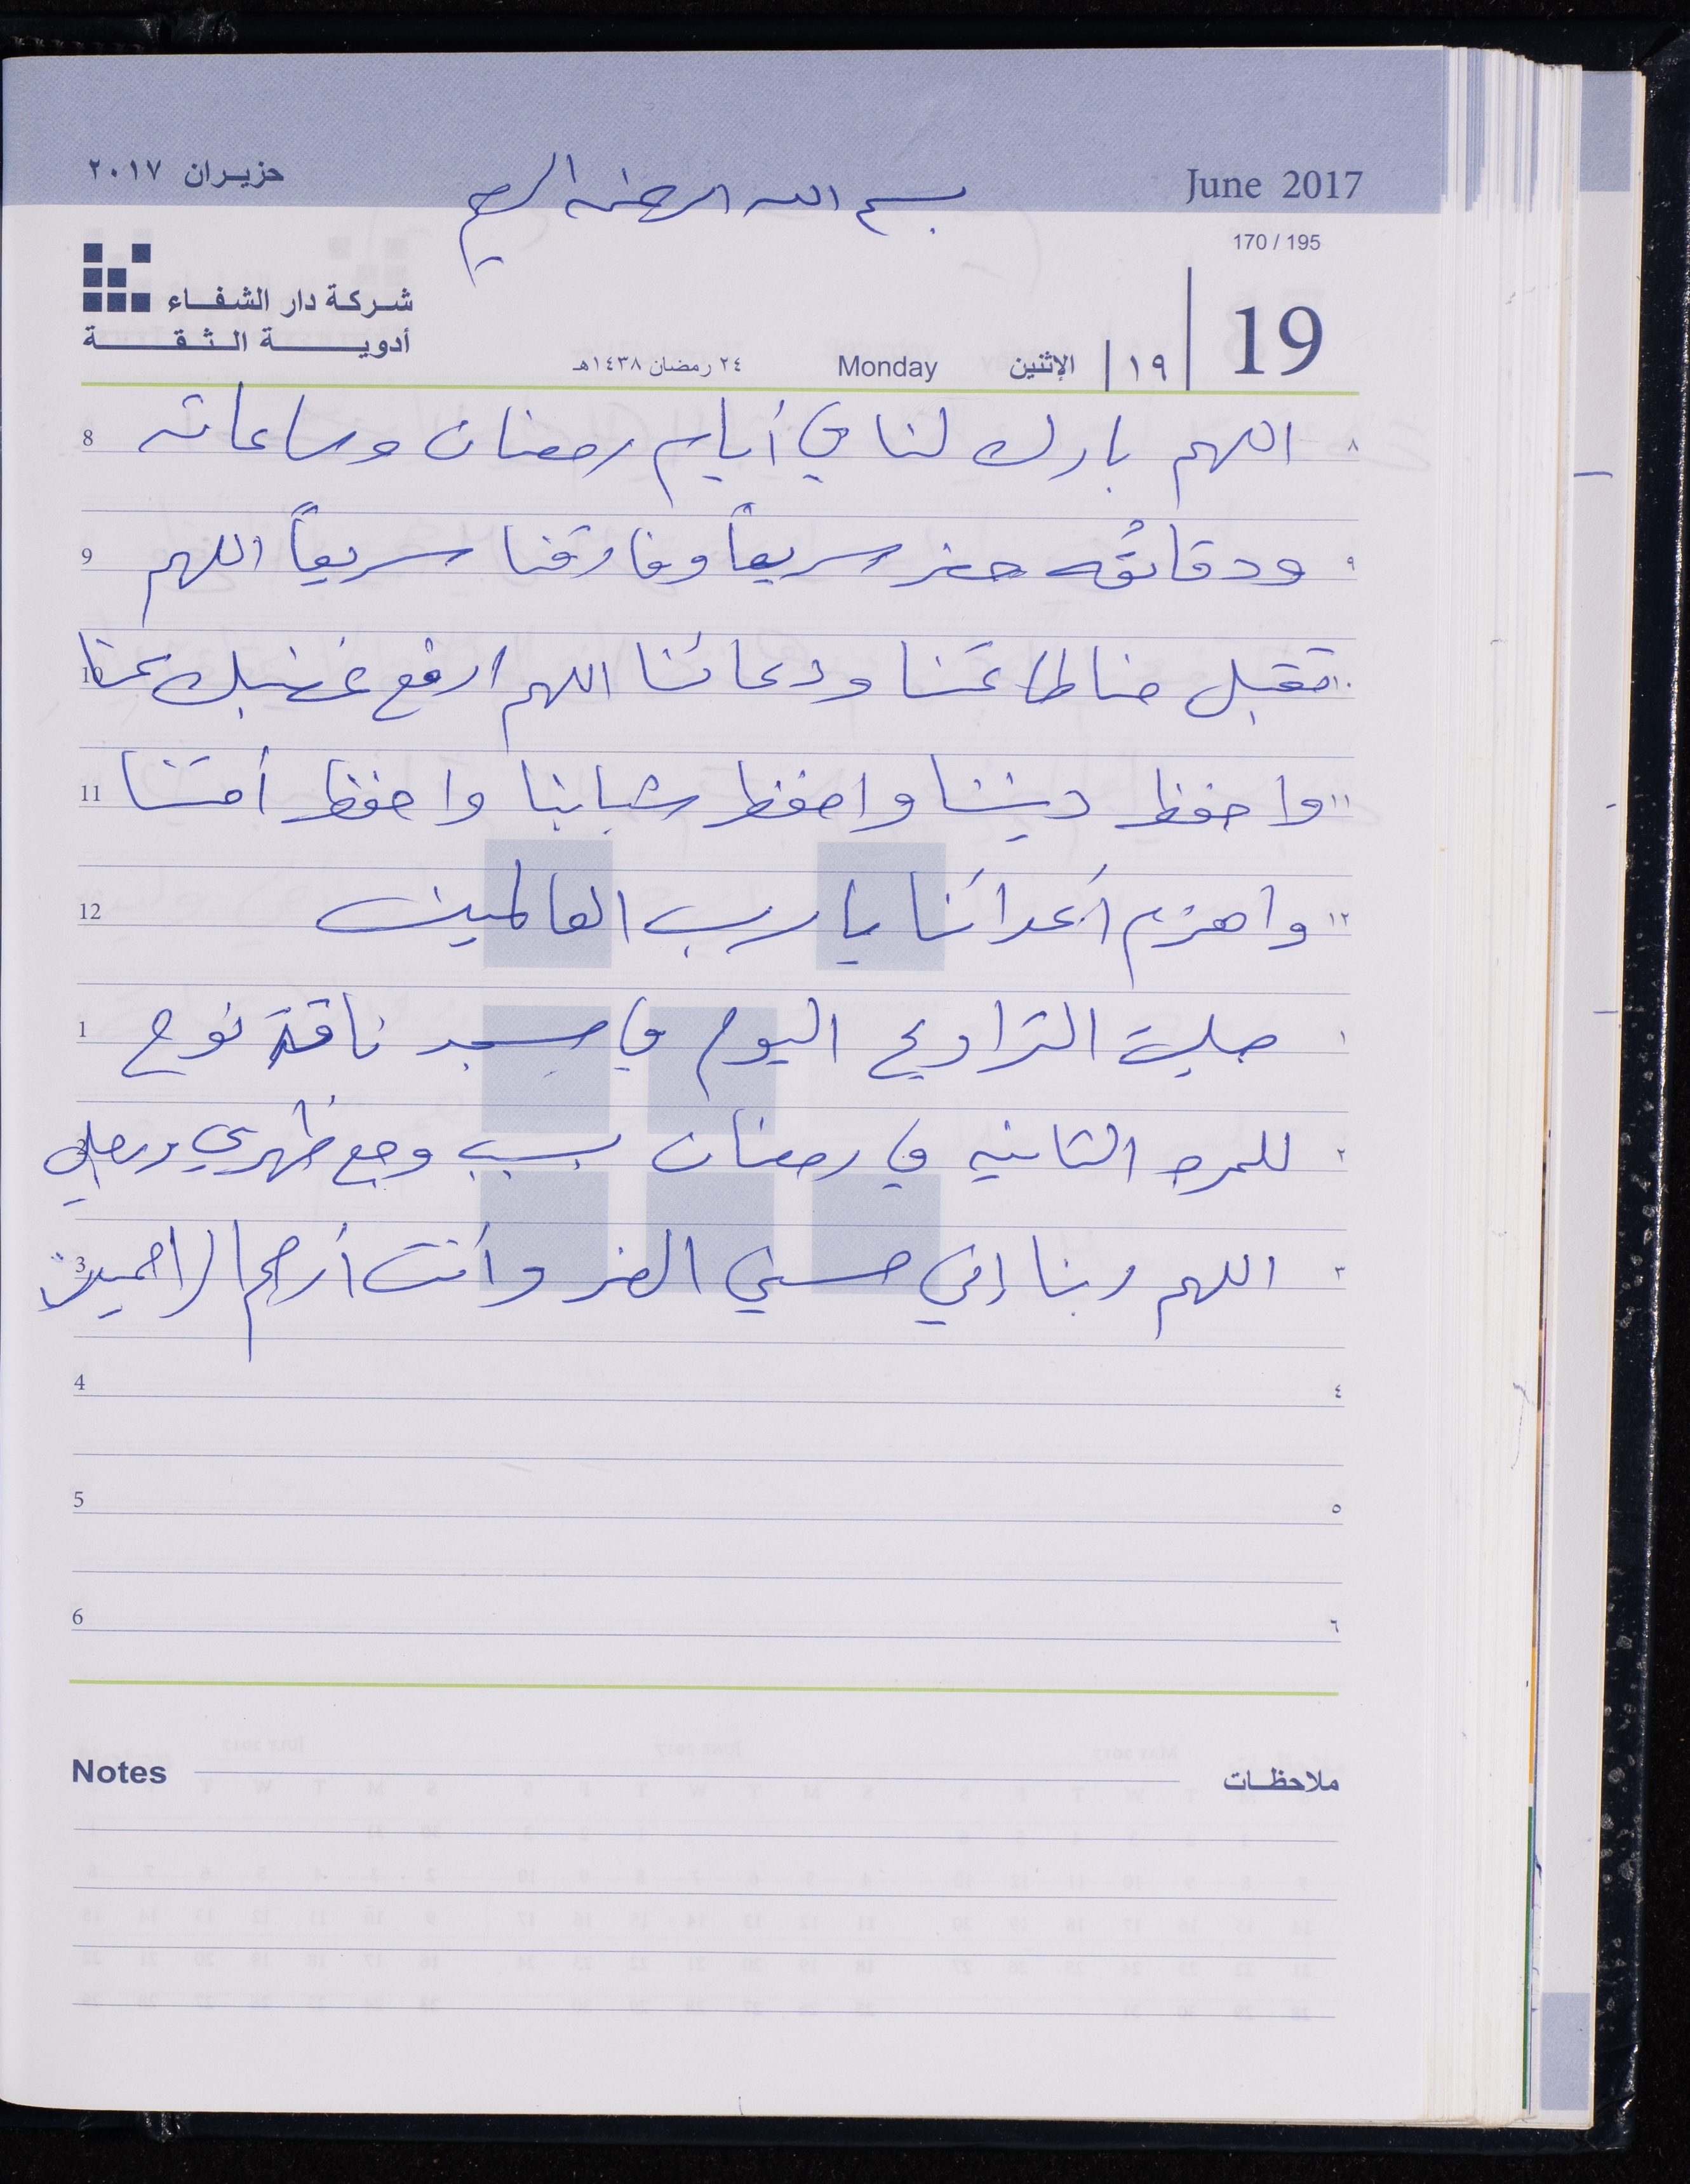 حزيران ٢٠١٧
بسم الله الرحمن الرحيم
June 2017
170 / 195
شركة دار الشفاء
أدوية الثقة
٢٤ رمضان ١٤٣٨هـ Monday الإثنين ١٩ 19
٨ اللهم بارك لنا في أيام رمضان وساعاته 8
٩ ودقائقه حضر سريعاً وفارقنا سريعاً اللهم 9
١٠ تقبل منا طاعتنا ودعائنا اللهم ارفع غضبك عنا 10
١١ واحفظ ديننا واحفظ شبابنا واحفظ أمتنا 11
١٢ واهزم أعدائنا يا رب العالمين 12
١ صليت التراويح اليوم في مسجد ناقة نوح 1
٢ للمره الثانيه في رمضان بسبب وجع ظهري ورجلي 2
٣ اللهم ربنا إني مسني الضر وأنت أرحم الراحمين 3
٤ 4
٥ 5
٦ 6
Notes ملاحظات